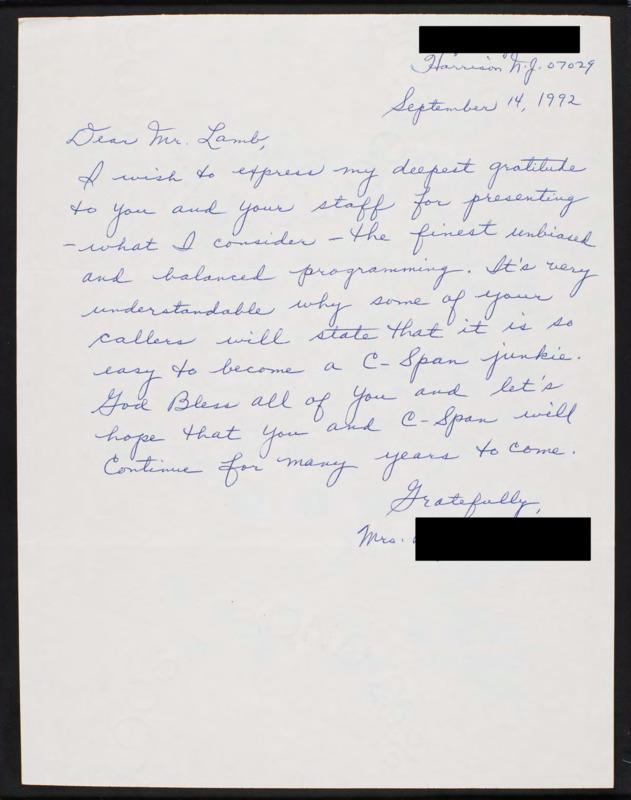 Harrison N.J. 07029
September 14, 1992
Dear Mr. Lamb,
I wish to express my deepest gratitude
to you and your staff for presenting
- what I consider - the finest unbiased
and balanced programming. It's very
understandable why some of your
callers will state that it is so
easy to become a C-Span junkie.
God Bless all of you and let's
hope that you and C-Span will
Continue for many years to come.
Gratefully,
Mrs.